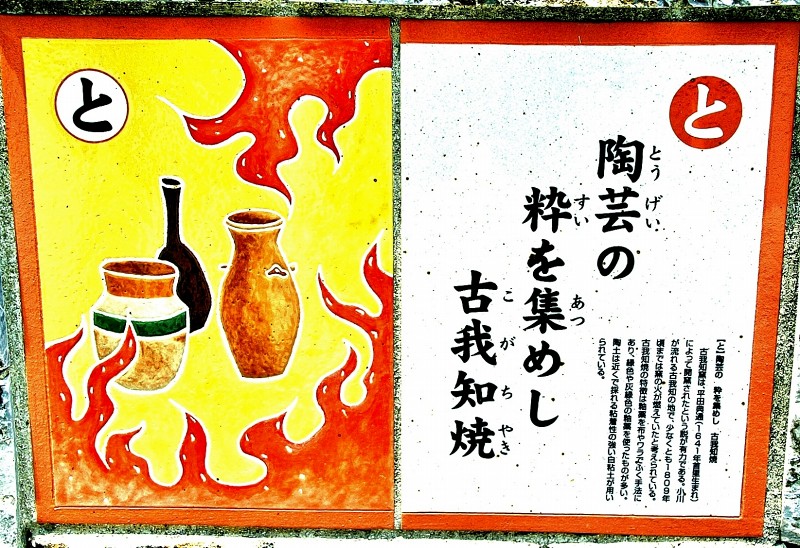 と
と
とうげい
陶芸の
すい あつ
粋を集めし
こがちやき
古我知焼
【と】陶芸の 粋を集めし 古我知焼
古我知窯は、平田典通(1641年首里生まれ)
によって開窯されたという説が有力である。小川
が流れる古我知の地で、少なくとも1809年
頃までは窯の火が燃えていたと考えられている。
古我知焼の特徴は釉薬を布やワラでふく手法に
あり、緑色や灰緑色の釉薬を使ったものが多い。
陶土は近くで採れる粘着性の強い白粘土が用い
られている。